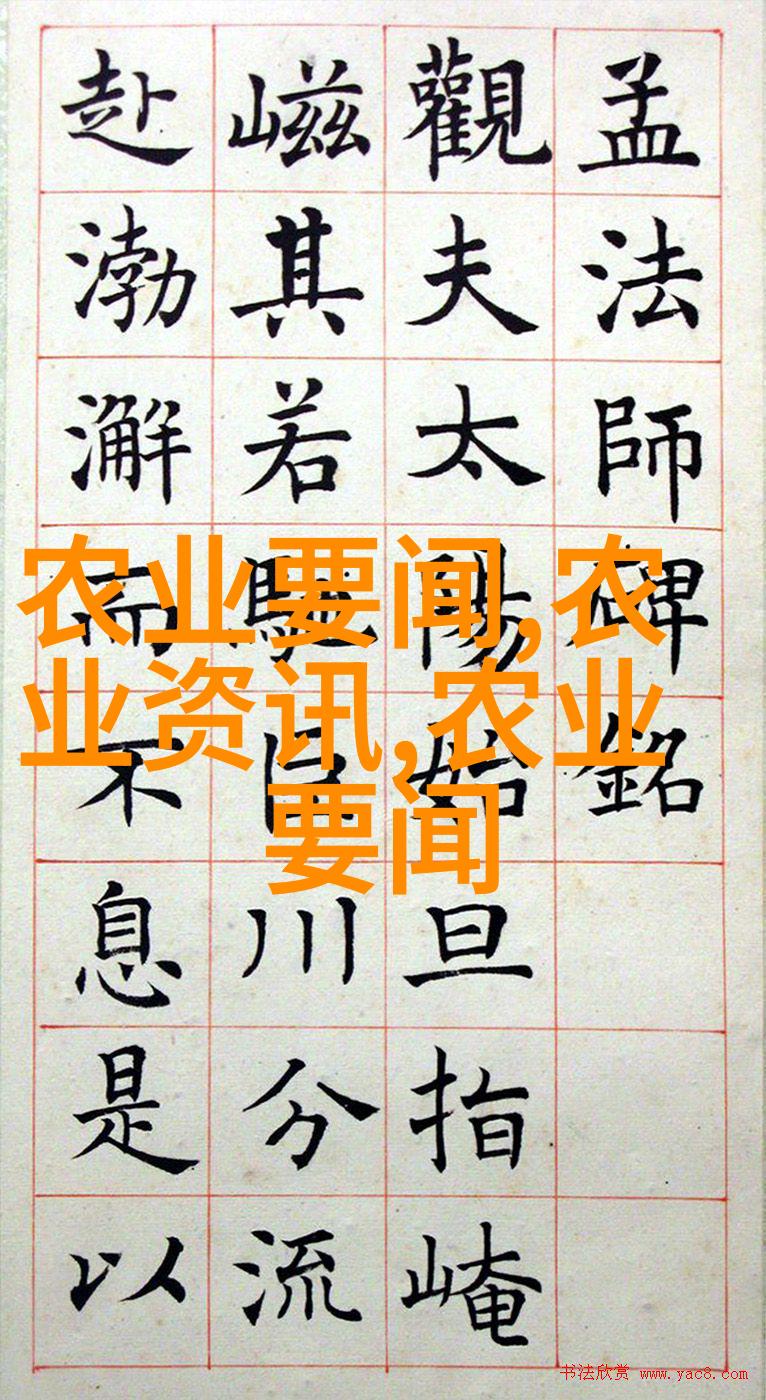 孟法師碑銘
觀夫太陽始旦指崦
嵫其若馳巨川分流
赴渤澥而不息是以
农业要闻,农
业资讯,农业
要闻
书法欣赏 www.yac8.com